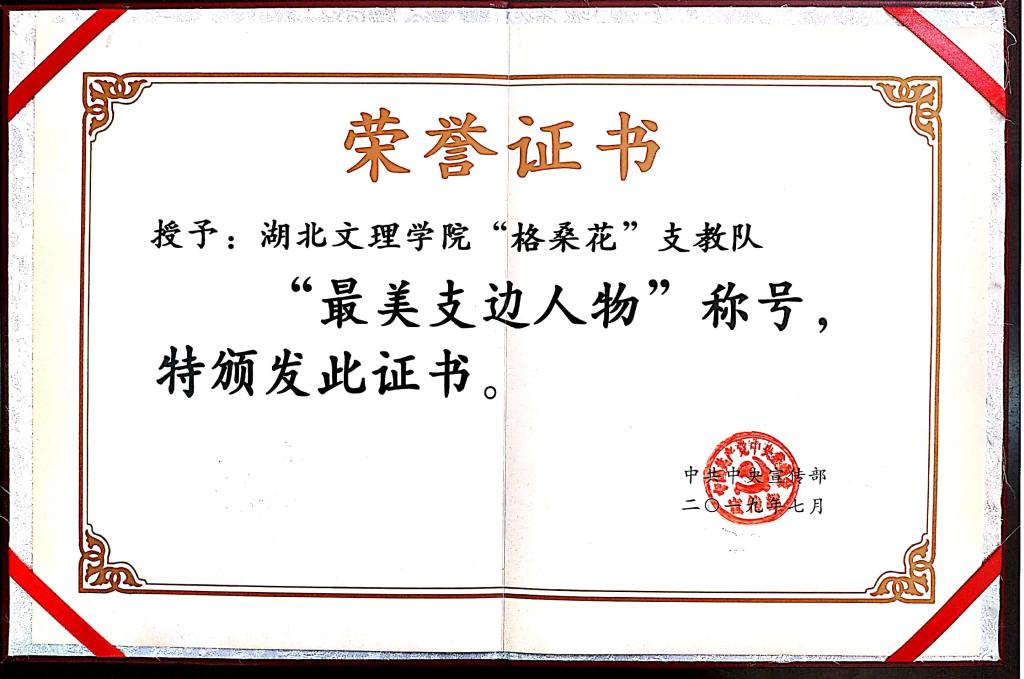 荣誉证书
授予：湖北文理学院“格桑花”支教队
“最美支边人物”称号，
特颁发此证书。
中共中央宣传部
二〇一九年七月